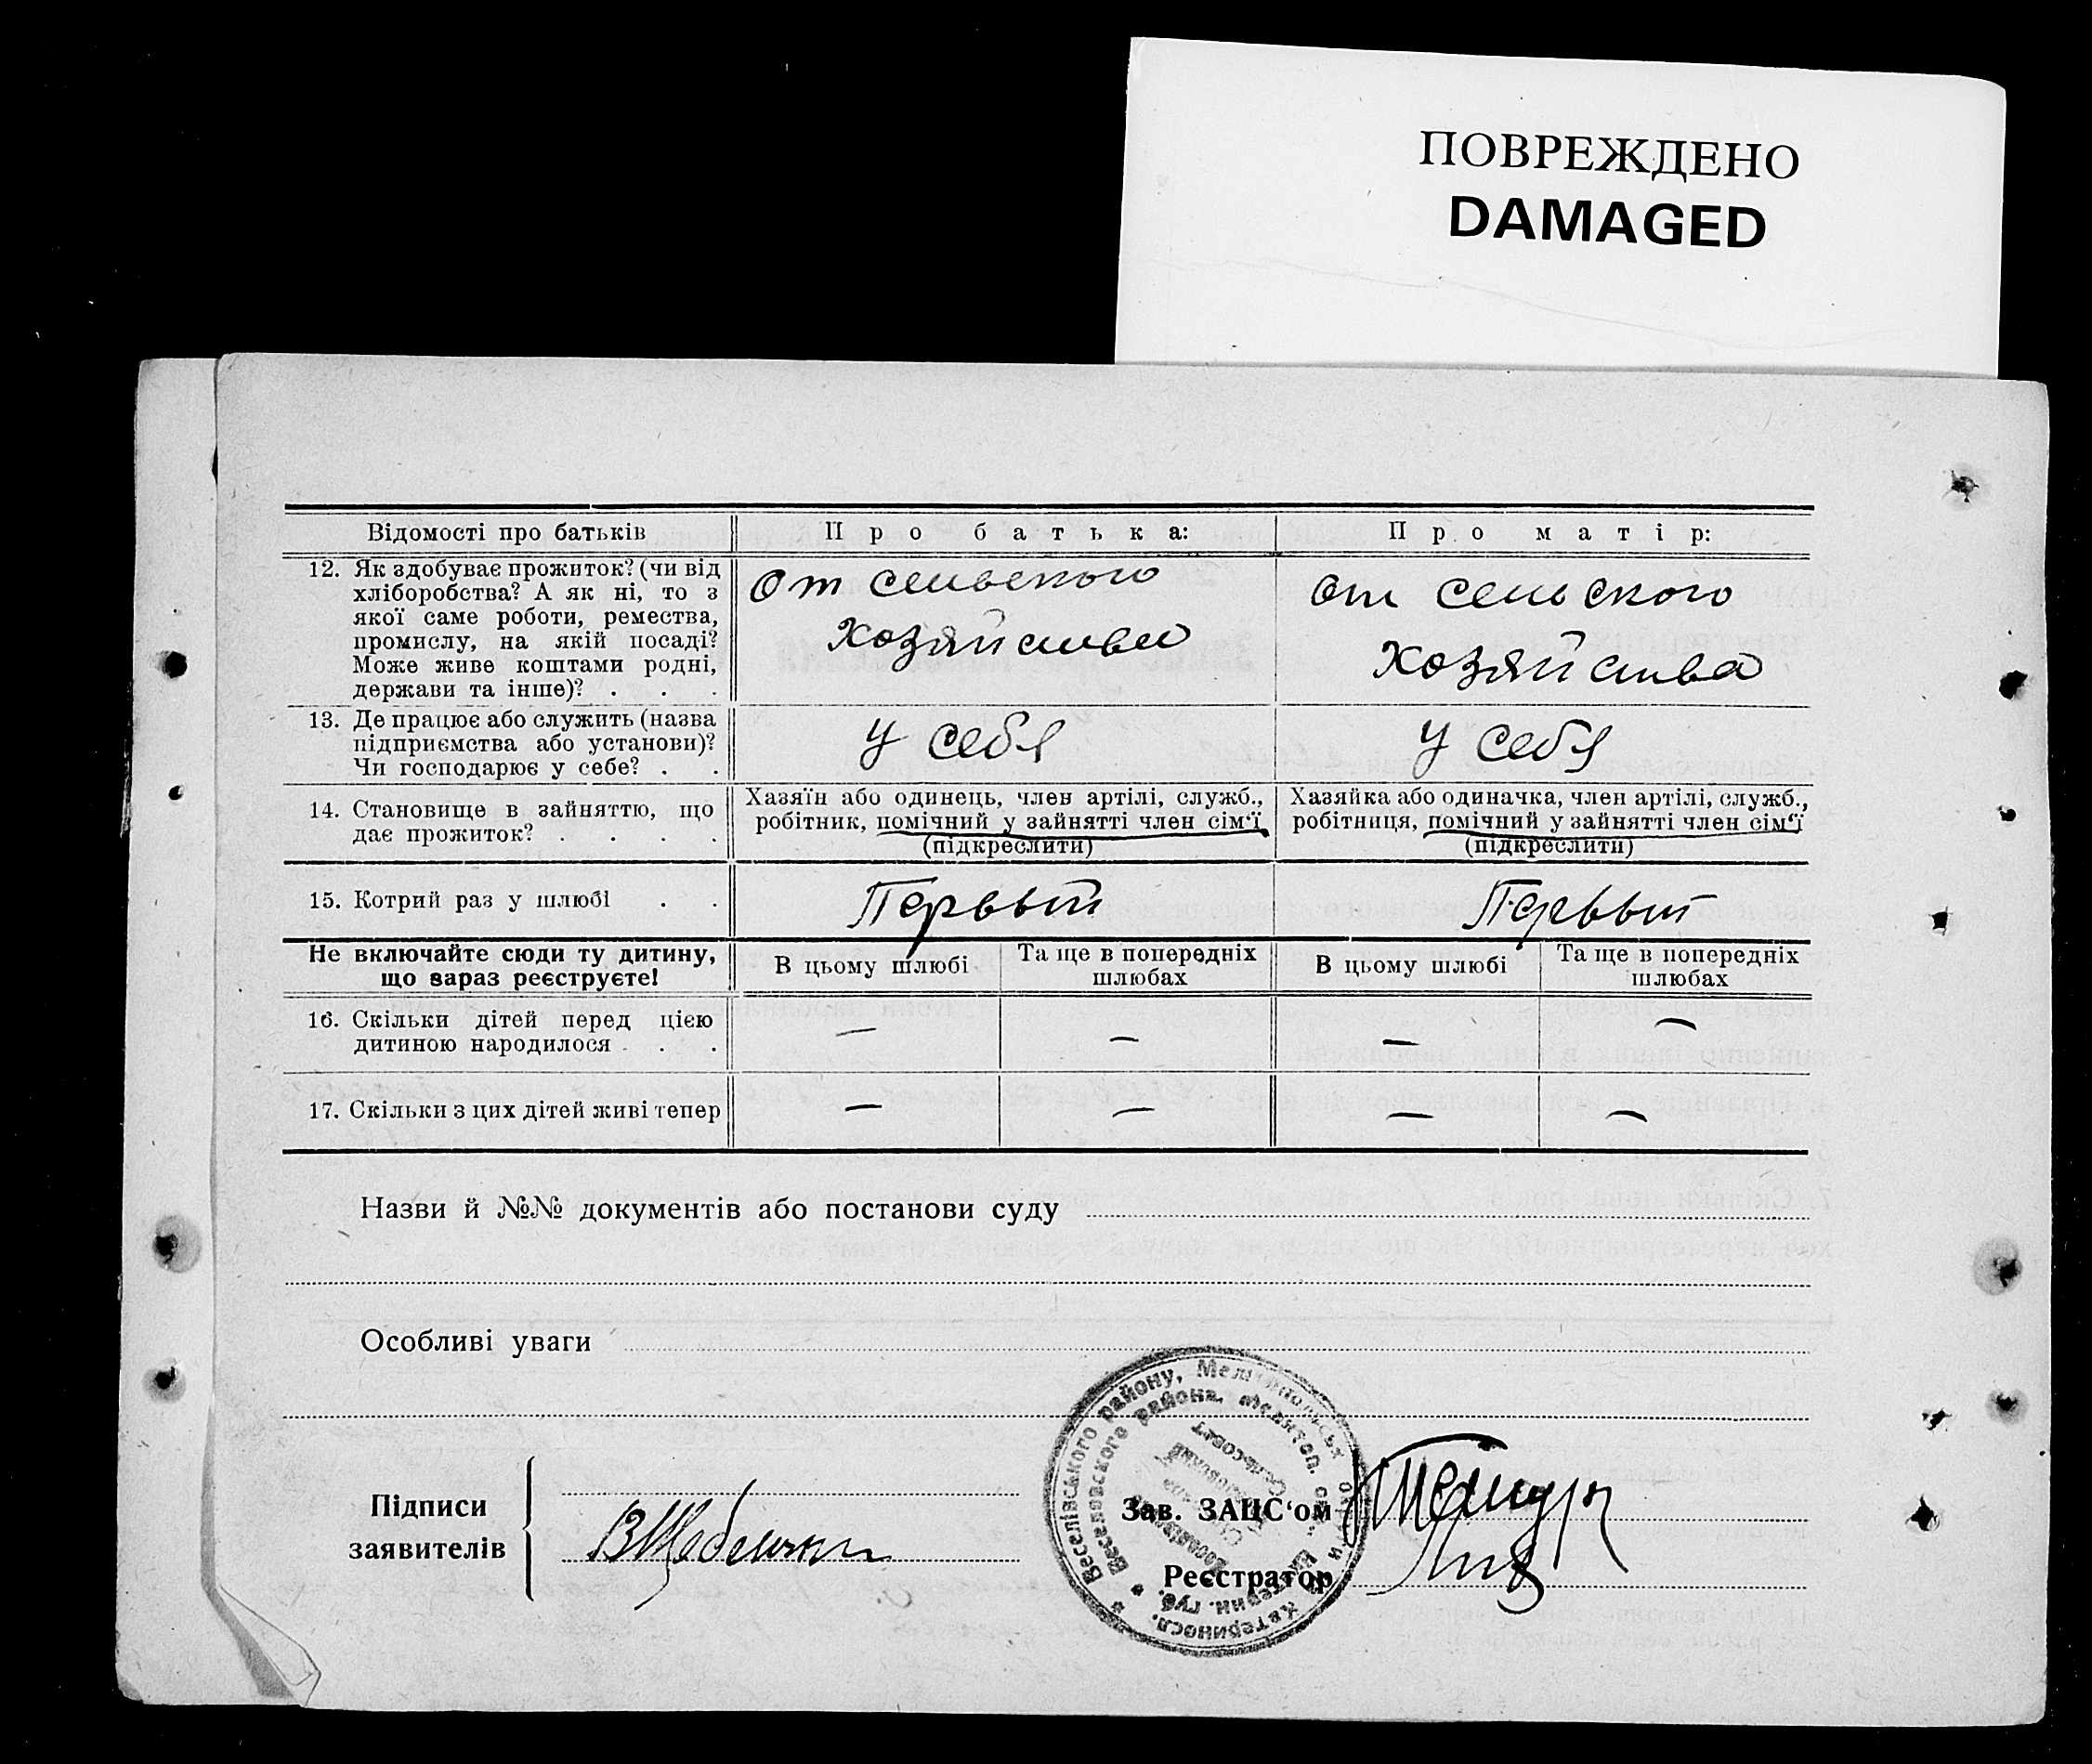 ПОВРЕЖДЕНО
DAMAGED
Відомості про батьків
Про батька:
Про матір:
12. Як здобуває прожиток? (чи від
хліборобства? А як ні, то з
якої саме роботи, ремества,
промислу, на якій посаді?
Може живе коштами родні,
держави та інше)? . . .
От сельского
хозяйства
От сельского
хозяйства
13. Де працює або служить (назва
підприємства або установи)?
Чи господарює у себе? . .
У себя
У себя
14. Становище в зайняттю, що
дає прожиток? . . . .
Хазяїн або одинець, член артілі, служб.,
робітник, помічний у зайнятті член сім'ї
(підкреслити)
Хазяйка або одиначка, член артілі, служб.,
робітниця, помічний у зайнятті член сім'ї
(підкреслити)
15. Котрий раз у шлюбі . .
Первый
Первый
Не включайте сюди ту дитину,
що зараз реєструєте!
В цьому шлюбі
Та ще в попередніх
шлюбах
В цьому шлюбі
Та ще в попередніх
шлюбах
16. Скільки дітей перед цією
дитиною народилося . . .
— — — —
17. Скільки з цих дітей живі тепер
— — — —
Назви й №№ документів або постанови суду
Особливі уваги
Веселівського району, Мелітопольськ округи Катериносл.
Веселовского района, Мелитоп. окр. Екатерин. губ.
Сельсовет
Підписи
заявителів
Зав. ЗАЦС'ом
Реєстратор